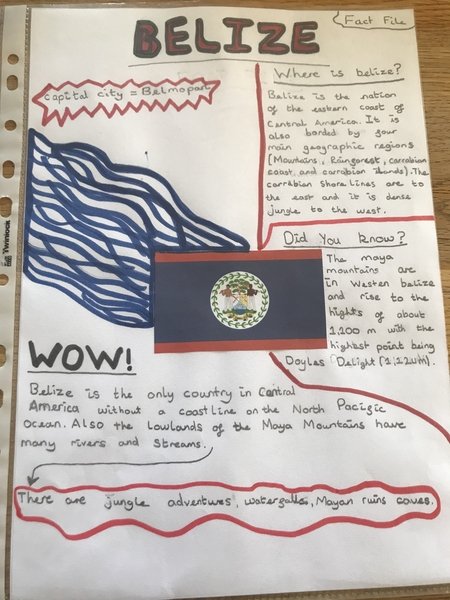 Fact File
BELIZE
Capital city = Belmopan
Where is belize?
Belize is the nation
of the eastern coast of
Central America. It is
also borded by four
main geographic regions
(Mountains, Rainforest, carrabian
coast, and carrabian islands). The
carrabian shore lines are to
the east and it is dense
jungle to the west.
Did you know?
The maya
mountains are
in Westen belize
and rise to the
hights of about
1,100 m with the
highest point being
Doyles Delight (1,124m).
WOW!
Belize is the only country in Central
America without a coastline on the North Pacific
Ocean. Also the lowlands of the Maya Mountains have
many rivers and streams.
There are jungle adventures, waterfalls, Mayan ruins caves.
Twinlock